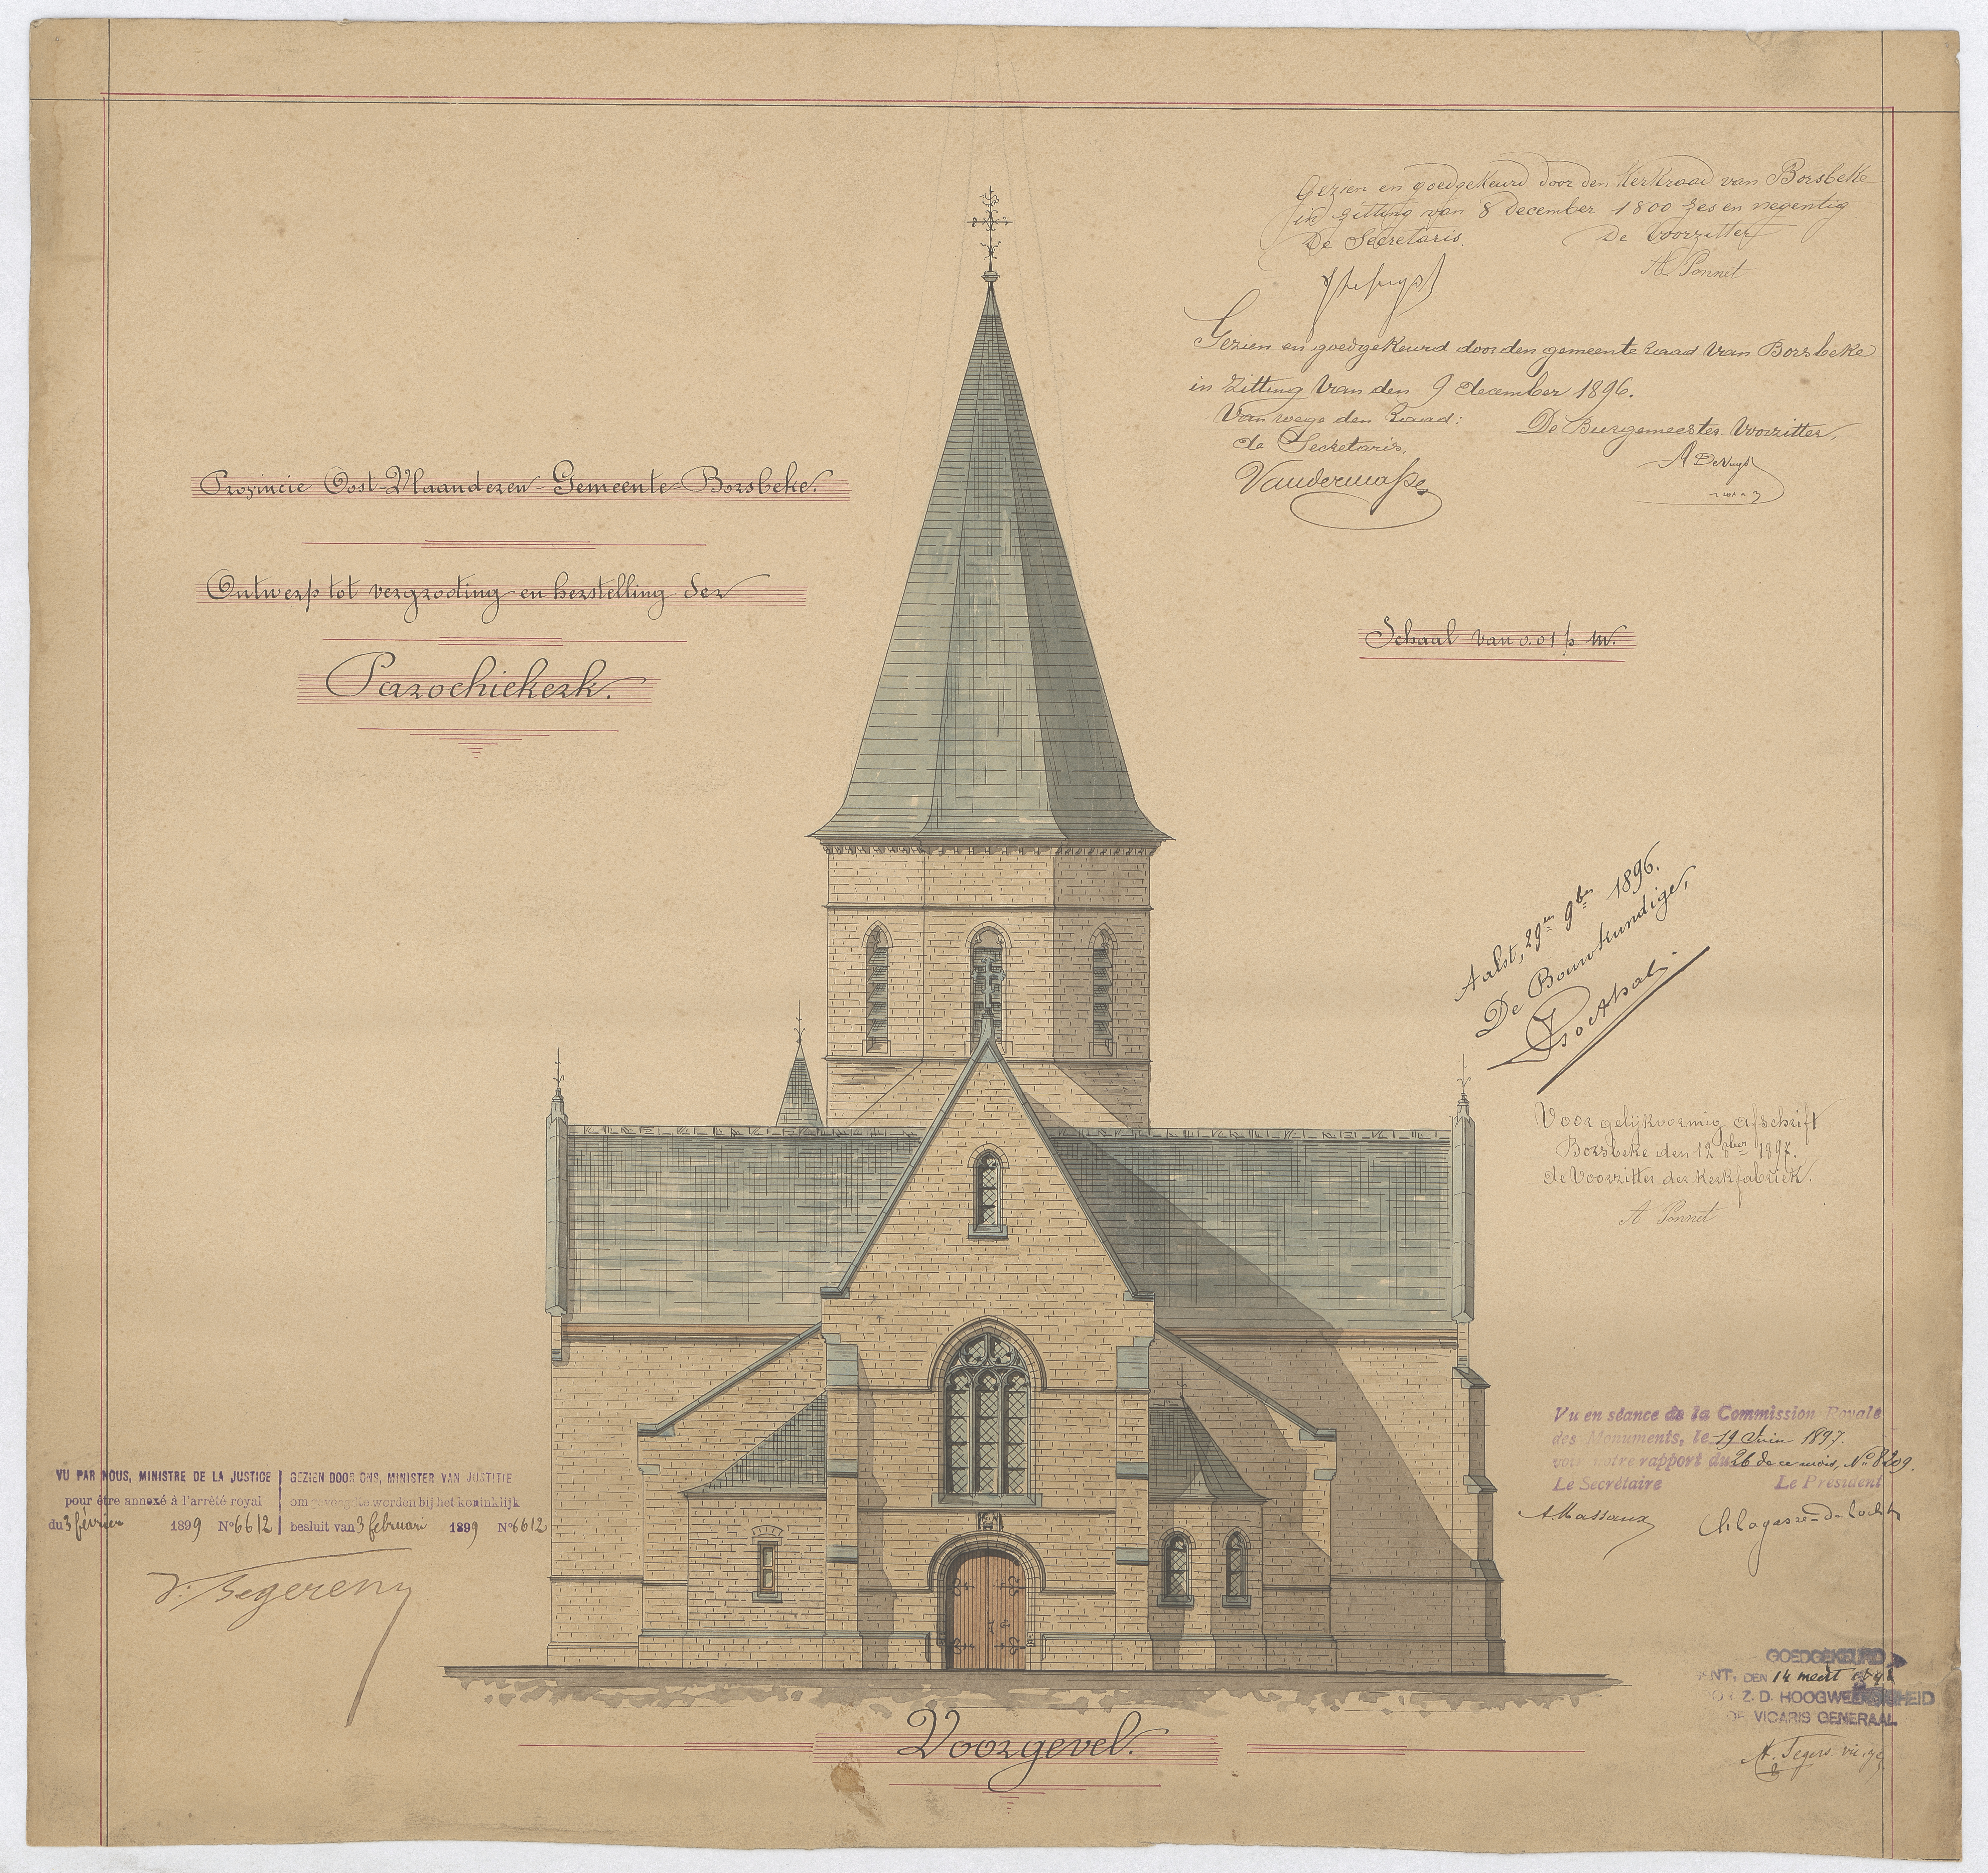 Provincie Oost-Vlaanderen Gemeente Borsbeke.
Ontwerp tot vergrooting en herstelling der
Parochiekerk.
Gezien en goedgekeurd door den Kerkraad van Borsbeke
in zitting van 8 December 1800 zes en negentig
De Secretaris. De Voorzitter
A Ponnet
Gezien en goedgekeurd door den gemeente raad van Borsbeke
in Zitting van den 9 december 1896.
Van wege den Raad: De Burgemeester Voorzitter,
de Secretaris,
Schaal van 0.01 p. M.
Aalst, 29en 9ber 1896.
De Bouwkundige,
Voor gelijkvormig afschrift
Borsbeke den 12 8ber 1897.
de Voorzitter der Kerkfabriek.
A Ponnet
Vu en séance de la Commission Royale
des Monuments, le 19 Juin 1897.
voir notre rapport du 26 de ce mois, No 8209.
Le Secrétaire Le Président
A. Massaux Ch Lagasse-de Locht
VU PAR NOUS, MINISTRE DE LA JUSTICE
pour être annexé à l'arrêté royal
du 3 février 1899 No 6612
GEZIEN DOOR ONS, MINISTER VAN JUSTITIE
om gevoegd te worden bij het koninklijk
besluit van 3 februari 1899 No 6612
V. Begerem
GOEDGEKEURD
DEN 14 meert
Z. D. HOOGWEERDIGHEID
DE VICARIS GENERAAL
Voorgevel.